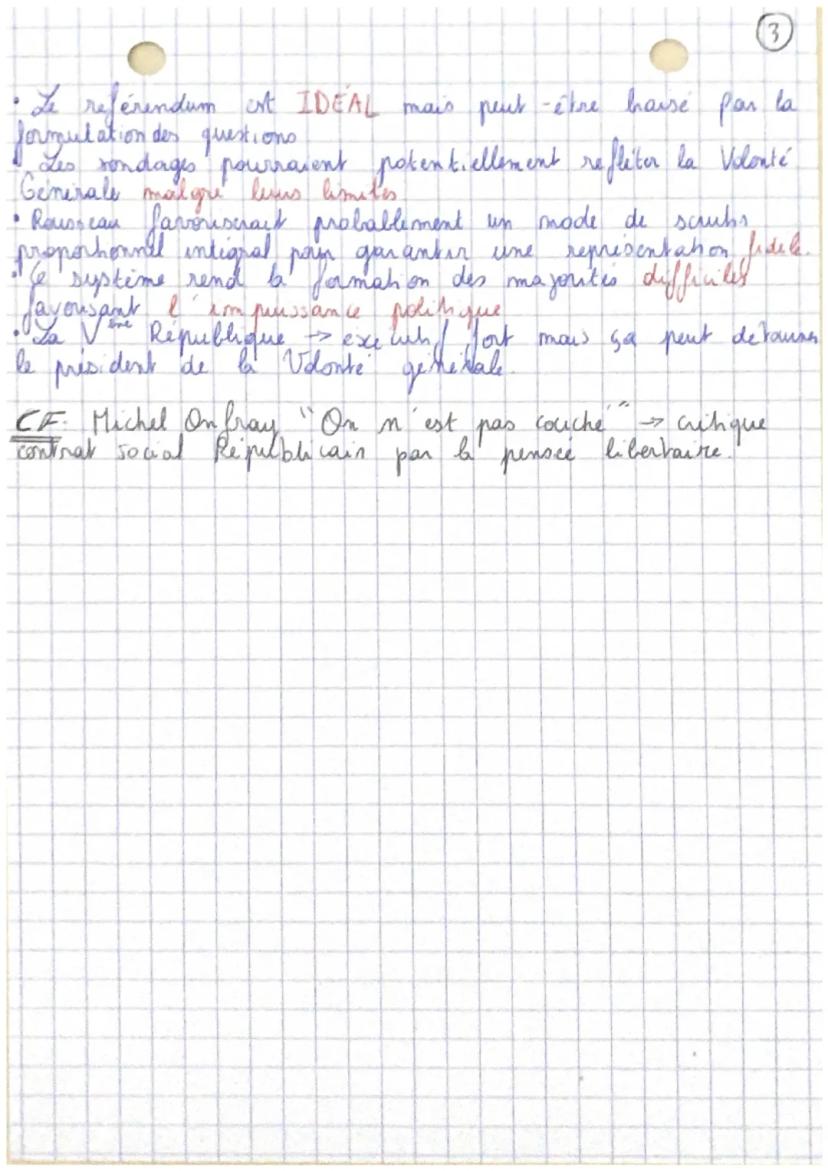 3
• Le referendum est IDÉAL mais peut-être biaisé par la
formulation des questions
• Les sondages pourraient potentiellement refléter la Volonté
Générale malgré leurs limites
• Rousseau favoriserait probablement un mode de scrutin
proportionnel intégral pour garantir une représentation fidèle.
• Ce système rend la formation des majorités difficiles
favorisant l'impuissance politique
• La Vème République → exécutif fort mais ça peut détourner
le président de la Volonté générale.
CF: Michel Onfray "On n'est pas couché" → critique
contrat social Républicain par la pensée libertaire.